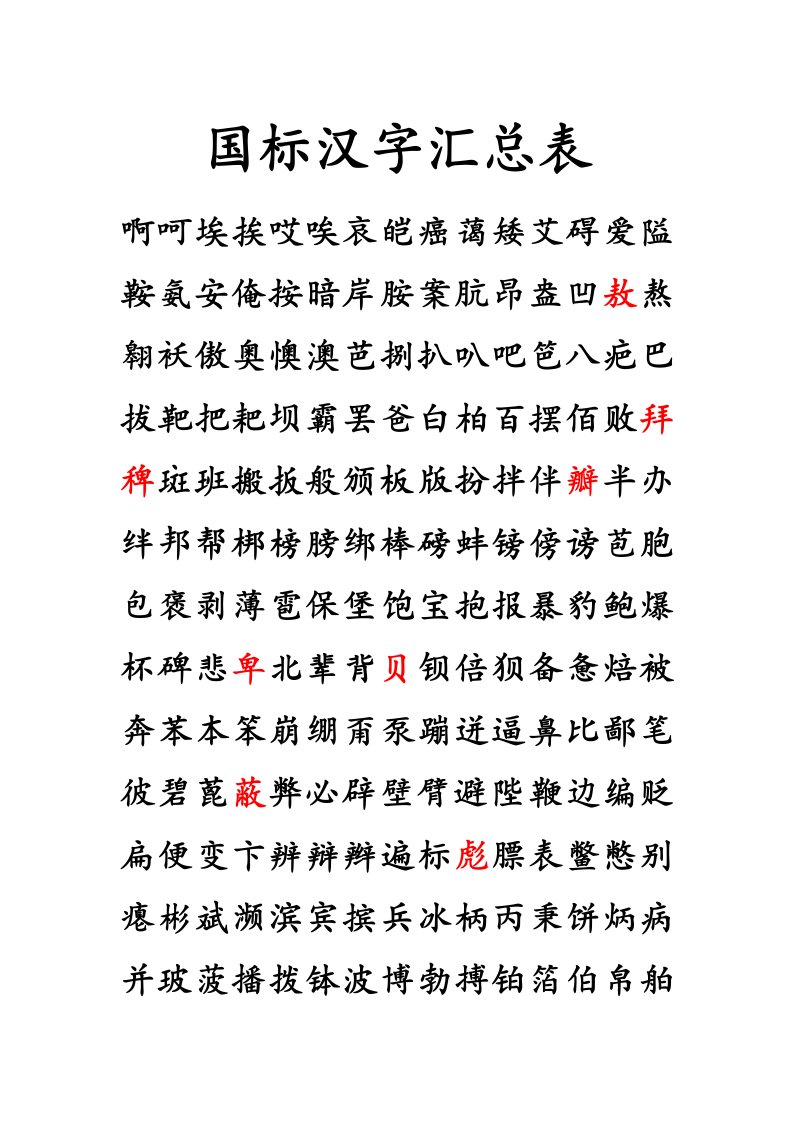 国标汉字汇总表
啊呵埃挨哎唉哀皑癌蔼矮艾碍爱隘
鞍氨安俺按暗岸胺案肮昂盎凹敖熬
翱袄傲奥懊澳芭捌扒叭吧笆八疤巴
拔靶把耙坝霸罢爸白柏百摆佰败拜
稗斑班搬扳般颁板版扮拌伴瓣半办
绊邦帮梆榜膀绑棒磅蚌镑傍谤苞胞
包褒剥薄雹保堡饱宝抱报暴豹鲍爆
杯碑悲卑北辈背贝钡倍狈备惫焙被
奔苯本笨崩绷甭泵蹦迸逼鼻比鄙笔
彼碧蓖蔽弊必辟壁臂避陛鞭边编贬
扁便变卞辨辩辫遍标彪膘表鳖憋别
瘪彬斌濒滨宾摈兵冰柄丙秉饼炳病
并玻菠播拨钵波博勃搏铂箔伯帛舶